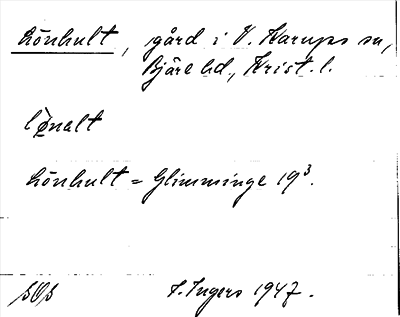 Lönhult, gård i V. Karups sn,
Bjäre hd., Krist. l.
lø̀nalt
Lönhult = Glimminge 19³.
I. Ingers 1947.